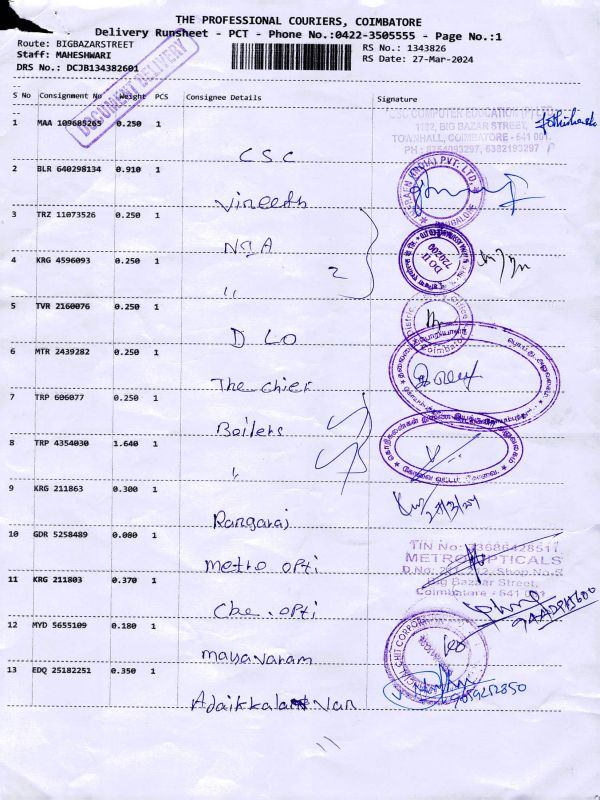 THE PROFESSIONAL COURIERS, COIMBATORE
Delivery Runsheet - PCT - Phone No.:0422-3505555 - Page No.:1
Route: BIGBAZARSTREET
RS No.: 1343826
Staff: MAHESHWARI
RS Date: 27-Mar-2024
DRS No.: DCJB134382601
DOCUMENT DELIVERY
S No Consignment No Weight PCS Consignee Details Signature
1 MAA 109685265 0.250 1
CSC COMPUTER EDUCATION (P) LTD
1182, BIG BAZAR STREET,
TOWNHALL, COIMBATORE - 641 001
CSC
2 BLR 640298134 0.910 1
Vineeth
(INDIA) PVT. LTD.
BANGALORE
3 TRZ 11073526 0.250 1
NIA
DO II
720200
4 KRG 4596093 0.250 1
" 2
5 TVR 2160076 0.250 1
DLO
Coimbatore
6 MTR 2439282 0.250 1
The chief
7 TRP 606077 0.250 1
Boilers
8 TRP 4354030 1.640 1
"
9 KRG 211863 0.300 1
27/3/24
Rangaraj
10 GDR 5258489 0.080 1
METRO OPTICALS
Big Bazaar Street,
Coimbatore - 641 001
Metro opti
11 KRG 211803 0.370 1
Cbe. opti
12 MYD 5655109 0.180 1
mayavaram
13 EDQ 25182251 0.350 1
Adaikkalam Van